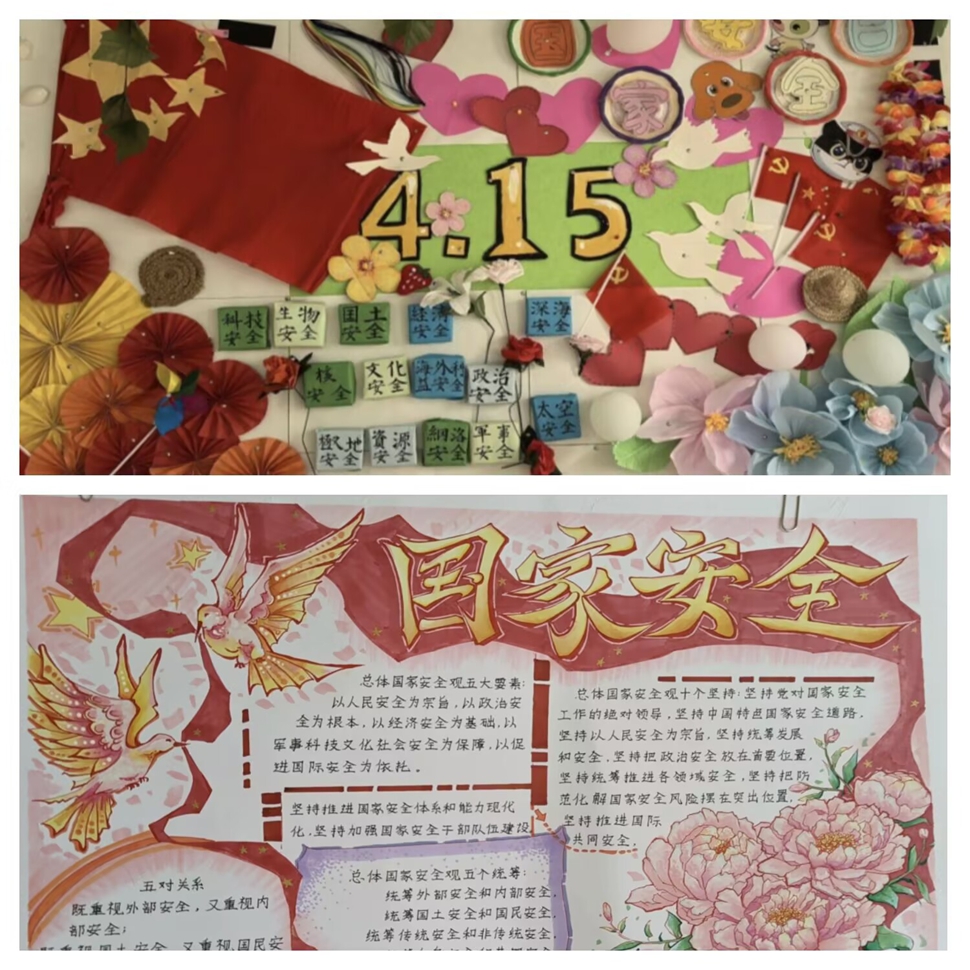 国 家 安 全
4.15
科技安全 生物安全 国土安全 经济安全 深海安全
核安全 文化安全 海外利益安全 政治安全
太空安全
極地安全 資源安全 網洛安全 軍事安全
国家安全
总体国家安全观五大要素:
以人民安全为宗旨,以政治安
全为根本,以经济安全为基础,以
军事科技文化社会安全为保障,以促
进国际安全为依托。
坚持推进国家安全体系和能力现代
化,坚持加强国家安全干部队伍建设
总体国家安全观十个坚持:坚持党对国家安全
工作的绝对领导,坚持中国特色国家安全道路,
坚持以人民安全为宗旨,坚持统筹发展
和安全,坚持把政治安全放在首要位置,
坚持统筹推进各领域安全,坚持把防
范化解国家安全风险摆在突出位置,
坚持推进国际
共同安全,
五对关系
既重视外部安全,又重视内
部安全;
既重视国土安全,又重视国民安
总体国家安全观五个统筹:
统筹外部安全和内部安全,
统筹国土安全和国民安全,
统筹传统安全和非传统安全,